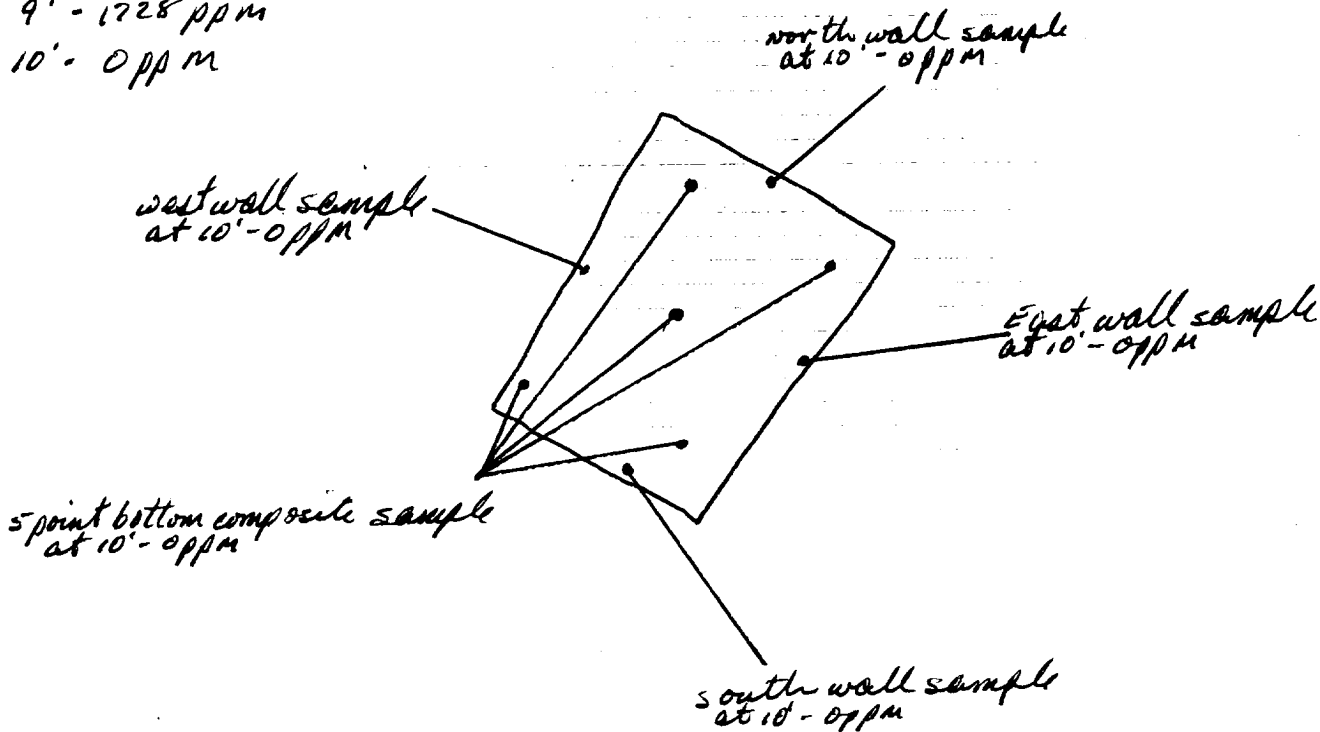 9' - 1728 ppm
10' - 0 ppm
north wall sample
at 10' - 0ppm
west wall sample
at 10' - 0ppm
East wall sample
at 10' - 0ppm
5 point bottom composite sample
at 10' - 0ppm
south wall sample
at 10' - 0ppm